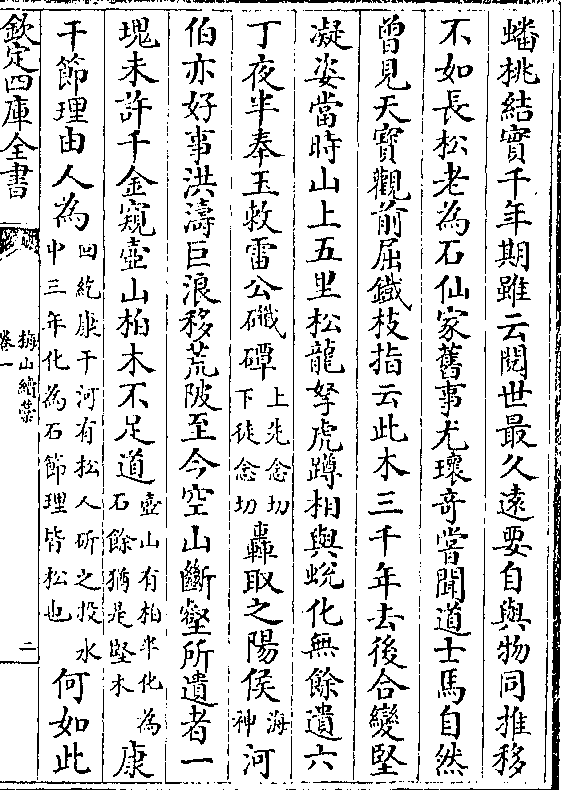 蟠桃結實千年期雖云閱世最久遠要自與物同推移
不如長松老為石仙家舊事尤瓌奇嘗聞道士馬自然
曾見天寶觀前屈鐵枝指云此木三千年去後合變堅
凝姿當時山上五里松龍拏虎蹲相與蛻化無餘遺六
丁夜半奉玉敕雷公礮磹上先念切下徒念切轟取之陽侯海神河
伯亦好事洪濤巨浪移荒陂至今空山斷壑所遺者一
塊未許千金窺壺山柏木不足道壺山有柏半化為石餘猶是堅木康
干節理由人為回紇康干河有松人斫之投水中三年化為石節理皆松也何如此
欽定四庫全書
梅山續藁
卷一
二